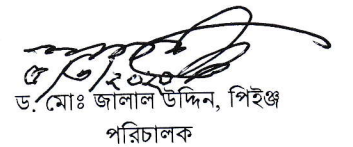 ড. মোঃ জালাল উদ্দিন, পিইঞ্জ
পরিচালক